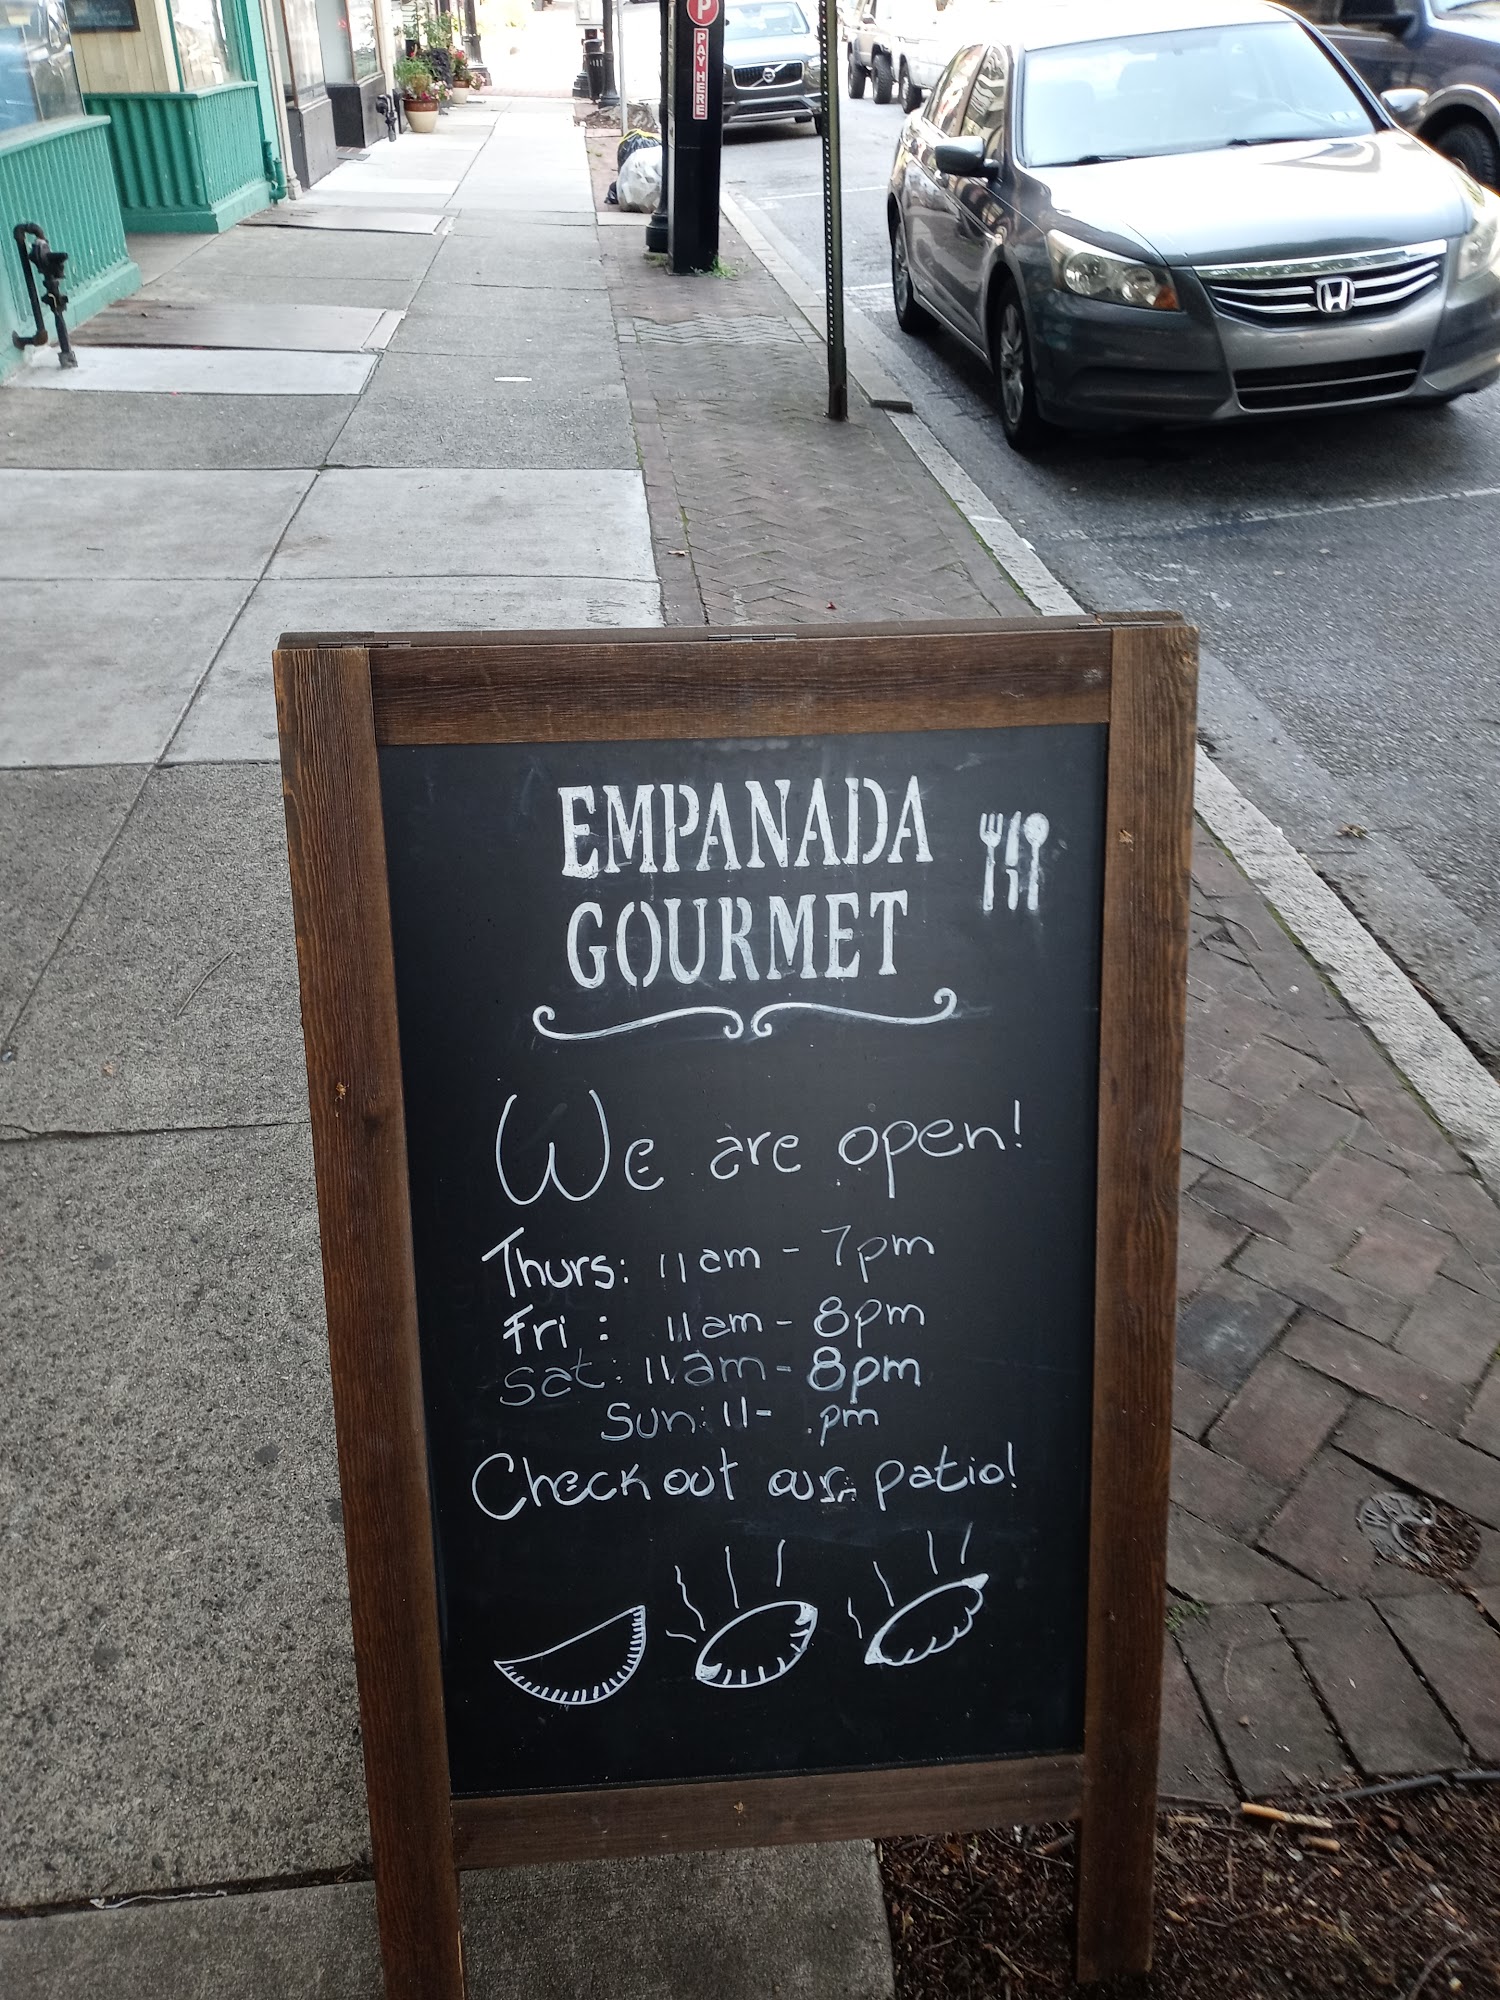 P
PAY HERE
EMPANADA
GOURMET
We are open!
Thurs: 11am - 7pm
Fri : 11am - 8pm
Sat: 11am - 8pm
Sun: 11- pm
Check out our patio!